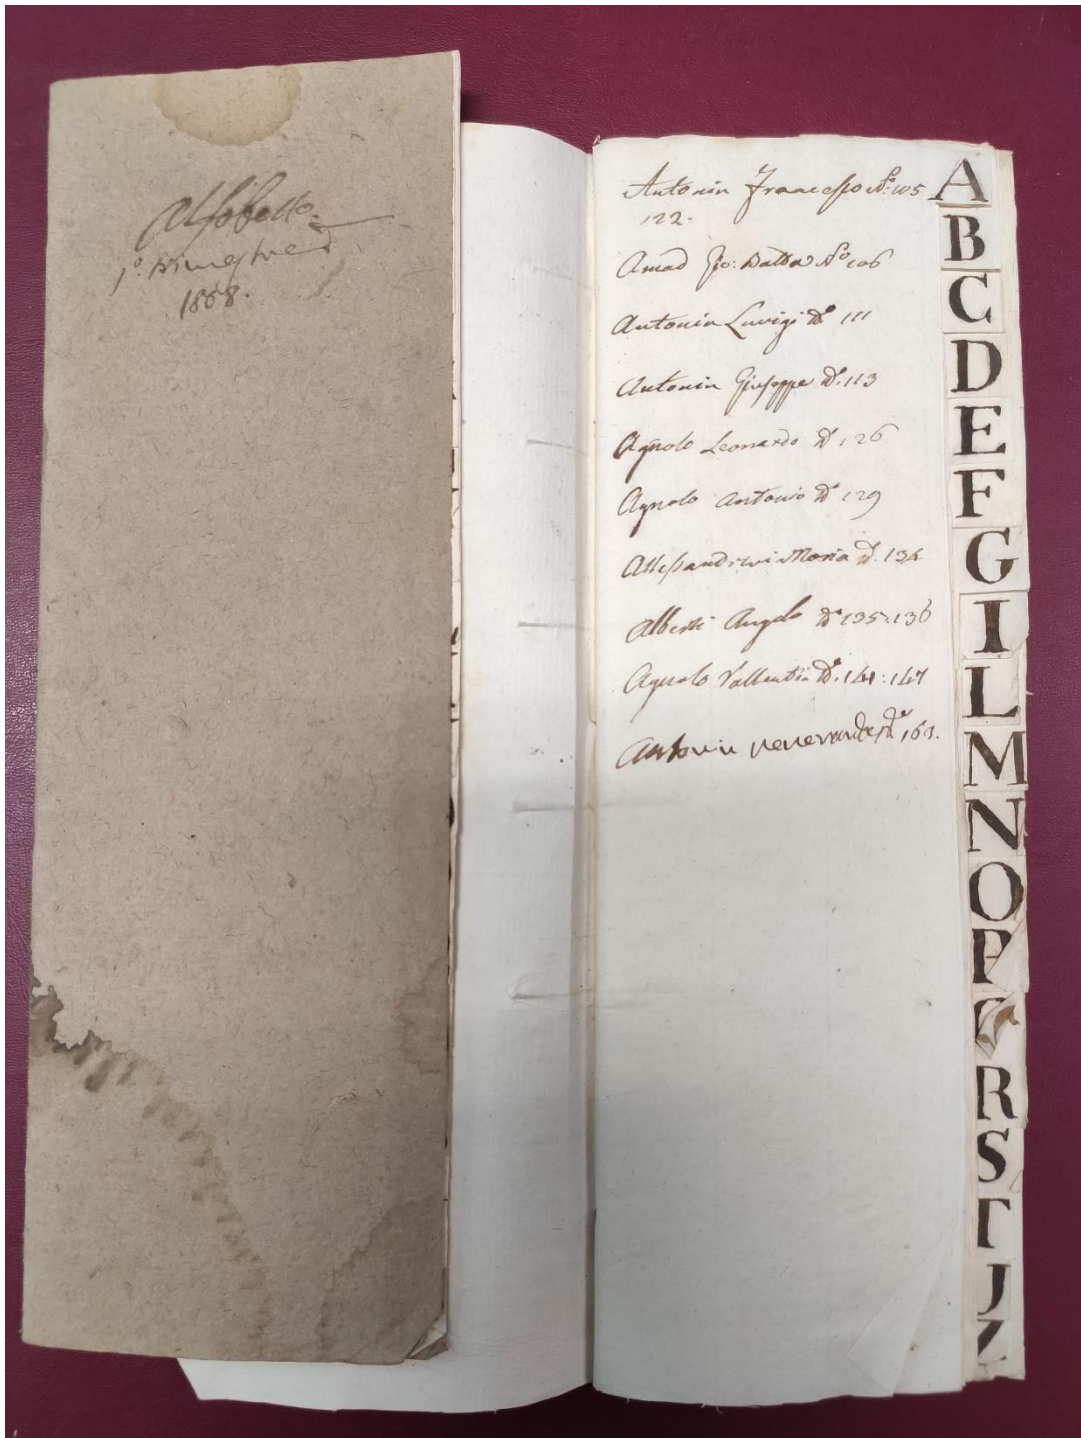 Alfabetto
1º. trimestre
1808.
Antonin Francesco Nº: 105
122.
Amad Gio: Batta Nº 106
Antonin Luvigi Nº 111
Antonin Giuseppe Nº. 113
Agnolo Leonardo Nº 126
Agnolo Antonio Nº 129
Allessandrini Maria Nº. 134
Alberti Angelo Nº 135: 136
Agnolo Vallentin Nº. 141: 147
Antonin Nº 163.
A
B
C
D
E
F
G
I
L
M
N
O
P
R
S
T